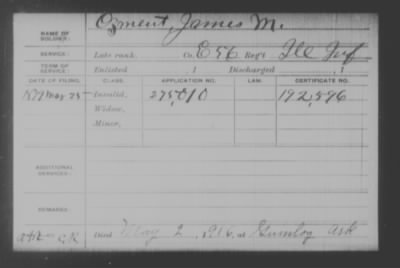 NAME OF SOLDIER: Ozment, James M.
SERVICE: Late rank, Co. E 56 Reg't Ill Inf
TERM OF SERVICE: Enlisted , 1 Discharged , 1
DATE OF FILING. CLASS. APPLICATION NO. LAW. CERTIFICATE NO.
1879 May 23 Invalid, 275,010 192,596
Widow,
Minor,
ADDITIONAL SERVICES:
REMARKS:
Died May 2, 1916, at Gumlog Ark